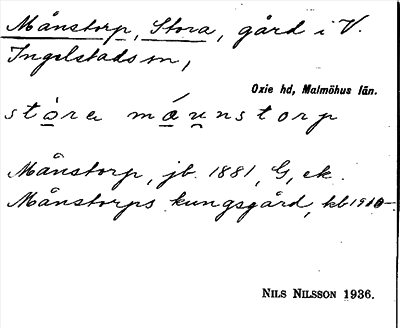 Månstorp, Stora, gård i V.
Ingelstads sn,
Oxie hd, Malmöhus län.
stòra máunstorp
Månstorp, jb. 1881, G, ek.
Månstorps kungsgård, kb 1910-
NILS NILSSON 1936.